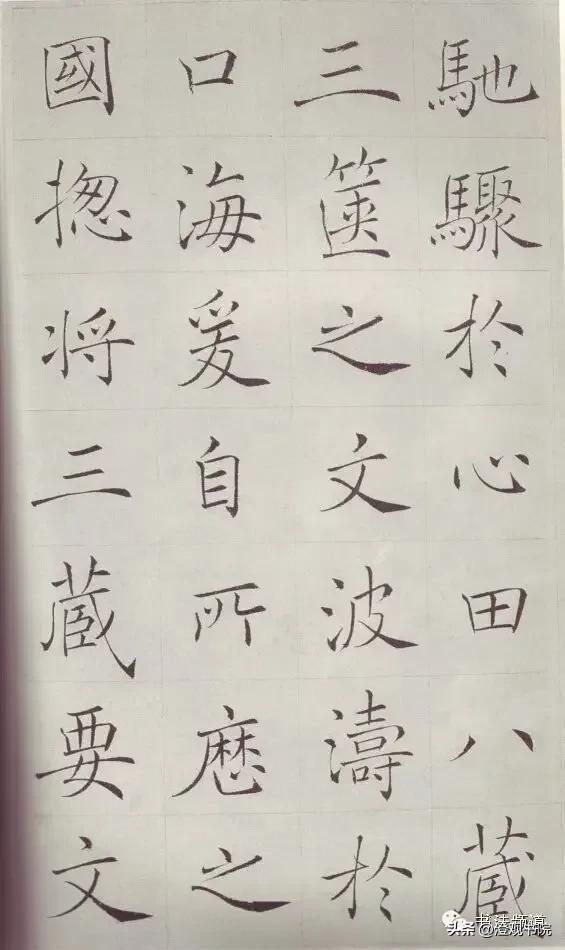 馳驟於心田八藏
三篋之文波濤於
口海爰自所歷之
國揔将三藏要文
书法频道
头条@澄观书院